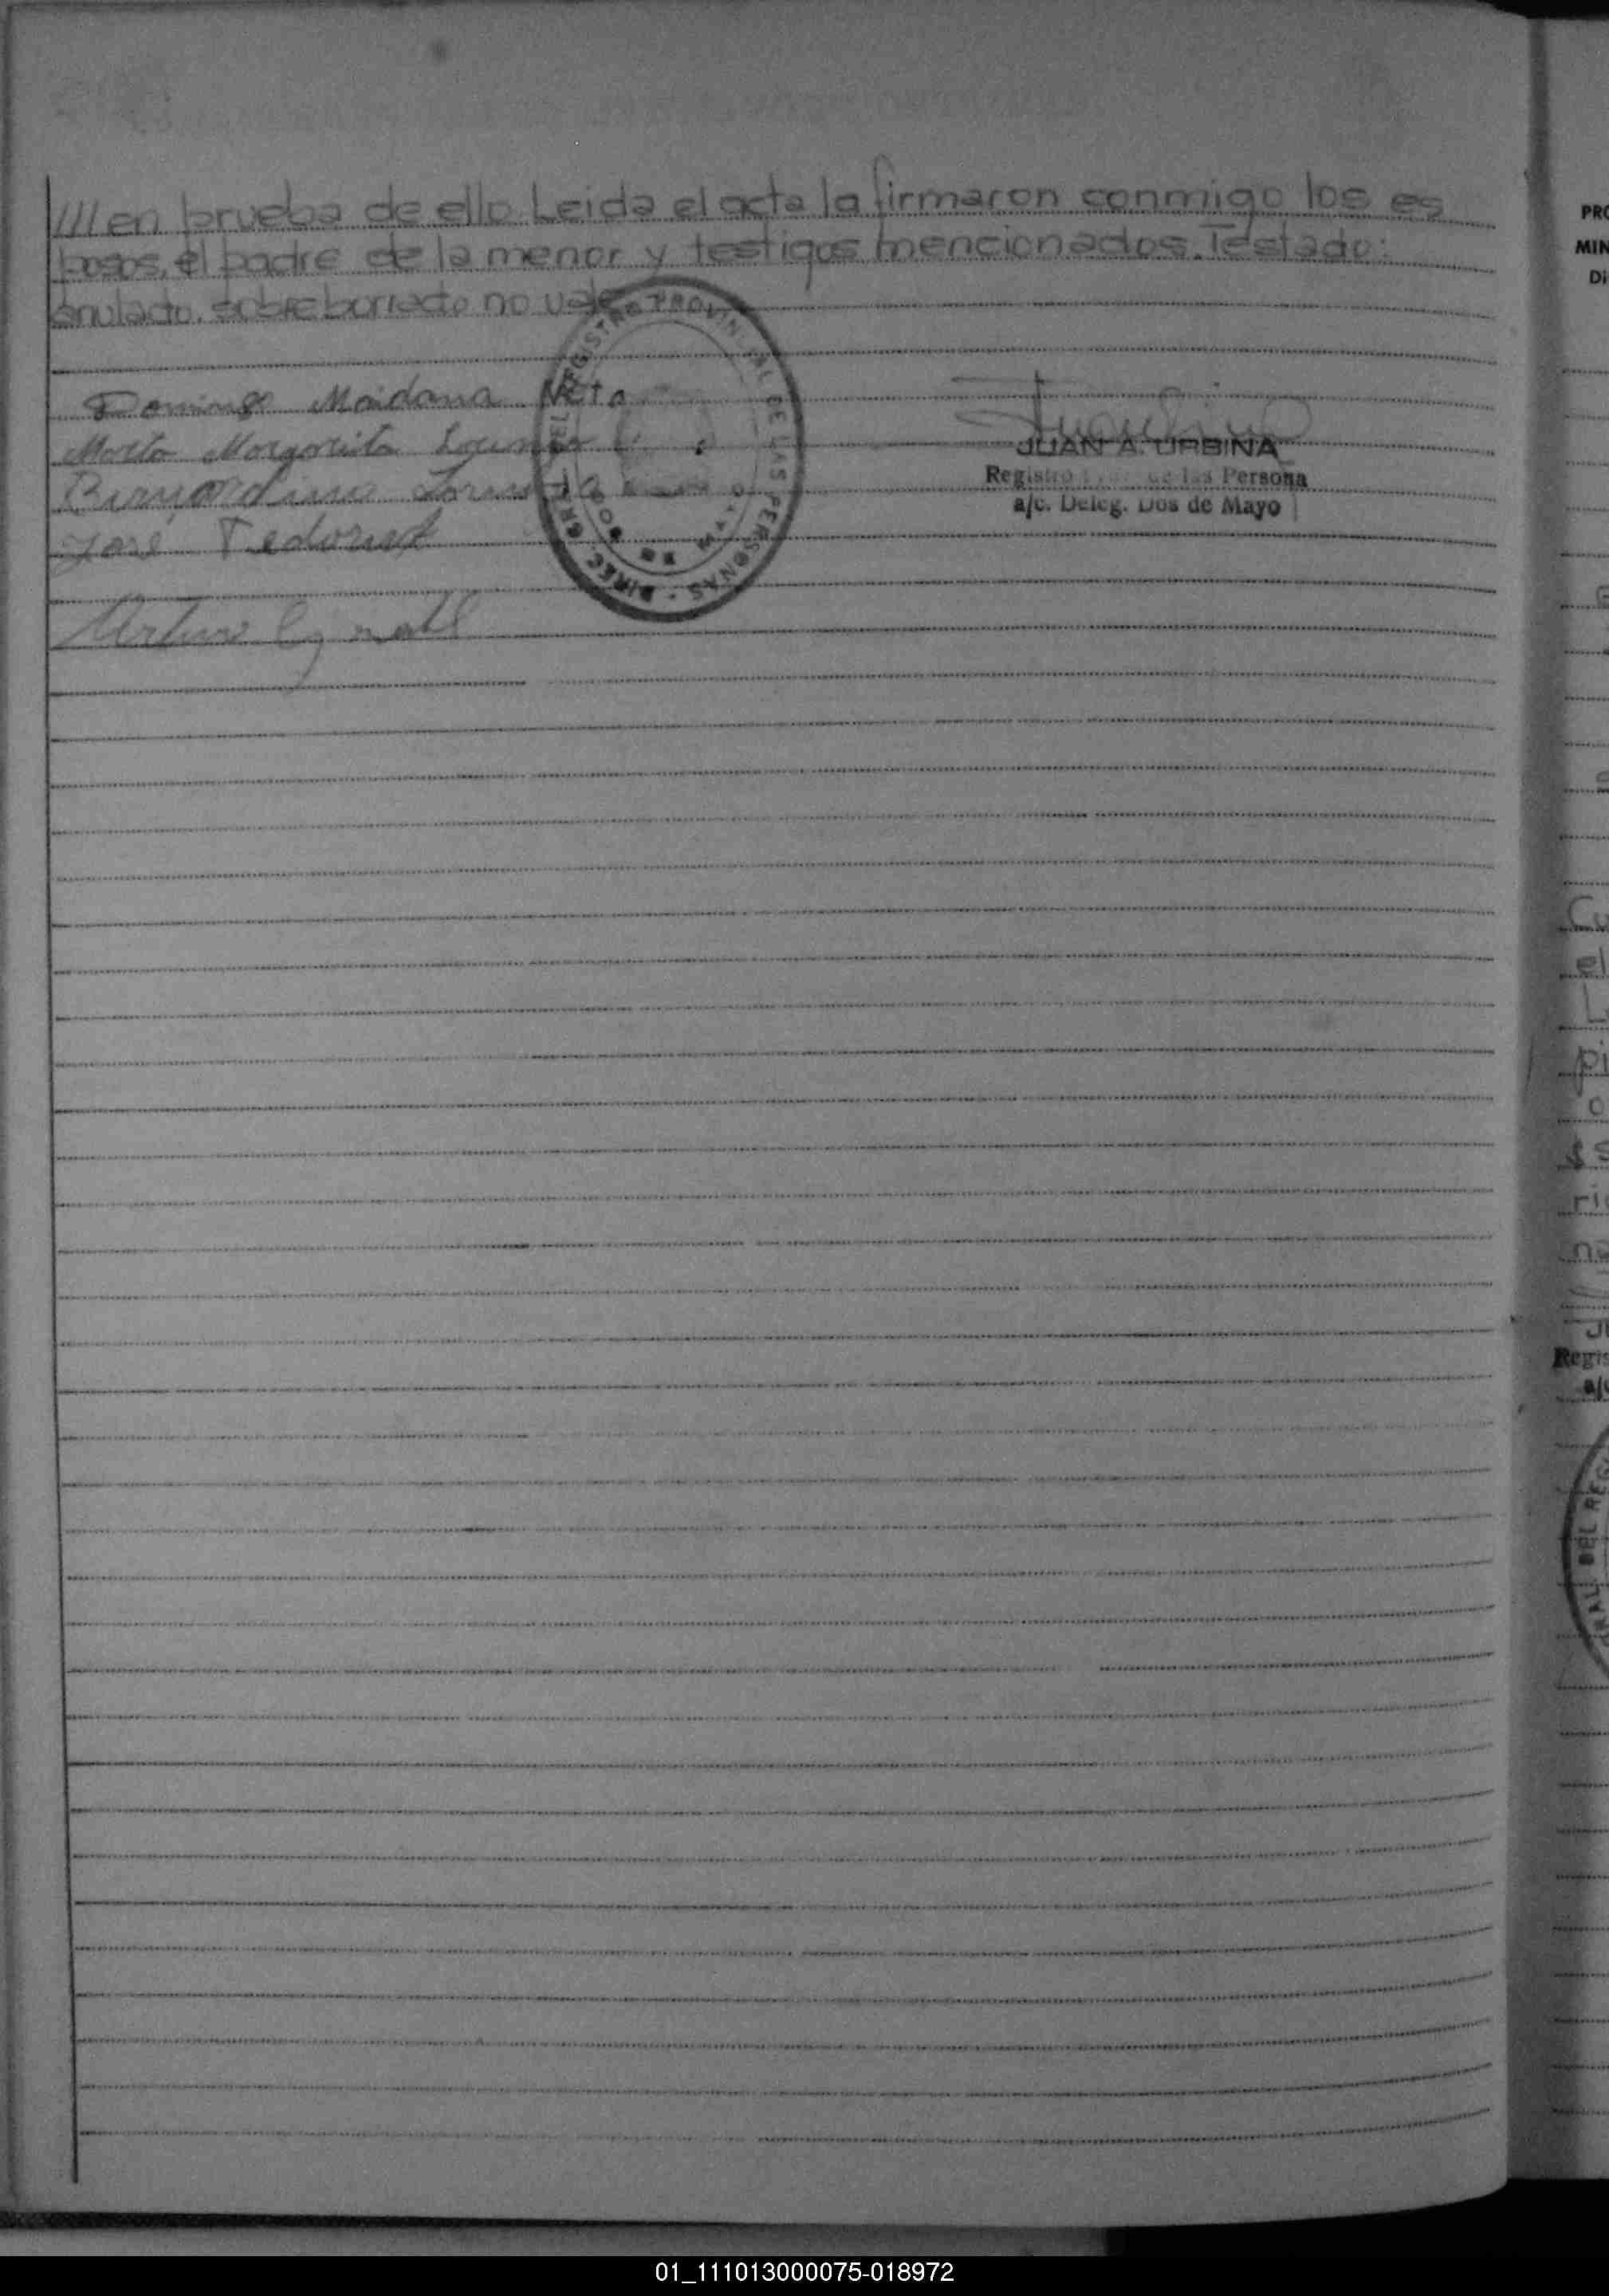 ///en prueba de ello Leida el acta la firmaron conmigo los es
posos, el padre de la menor y testigos mencionados. Testado:
anulado. sobre borrado no vale
Domingo Maidana Neto
Marta Margarita
Bernardino
José
Arturo
REGISTRO PROVINCIAL DE LAS PERSONAS - DIREC. GRAL. DEL
JUAN A. URBINA
Registro de las Persona
a/c. Deleg. Dos de Mayo
PRO
MIN
Di
Cu
el
pi
o
ri
na
Regis
a/c
01_111013000075-018972